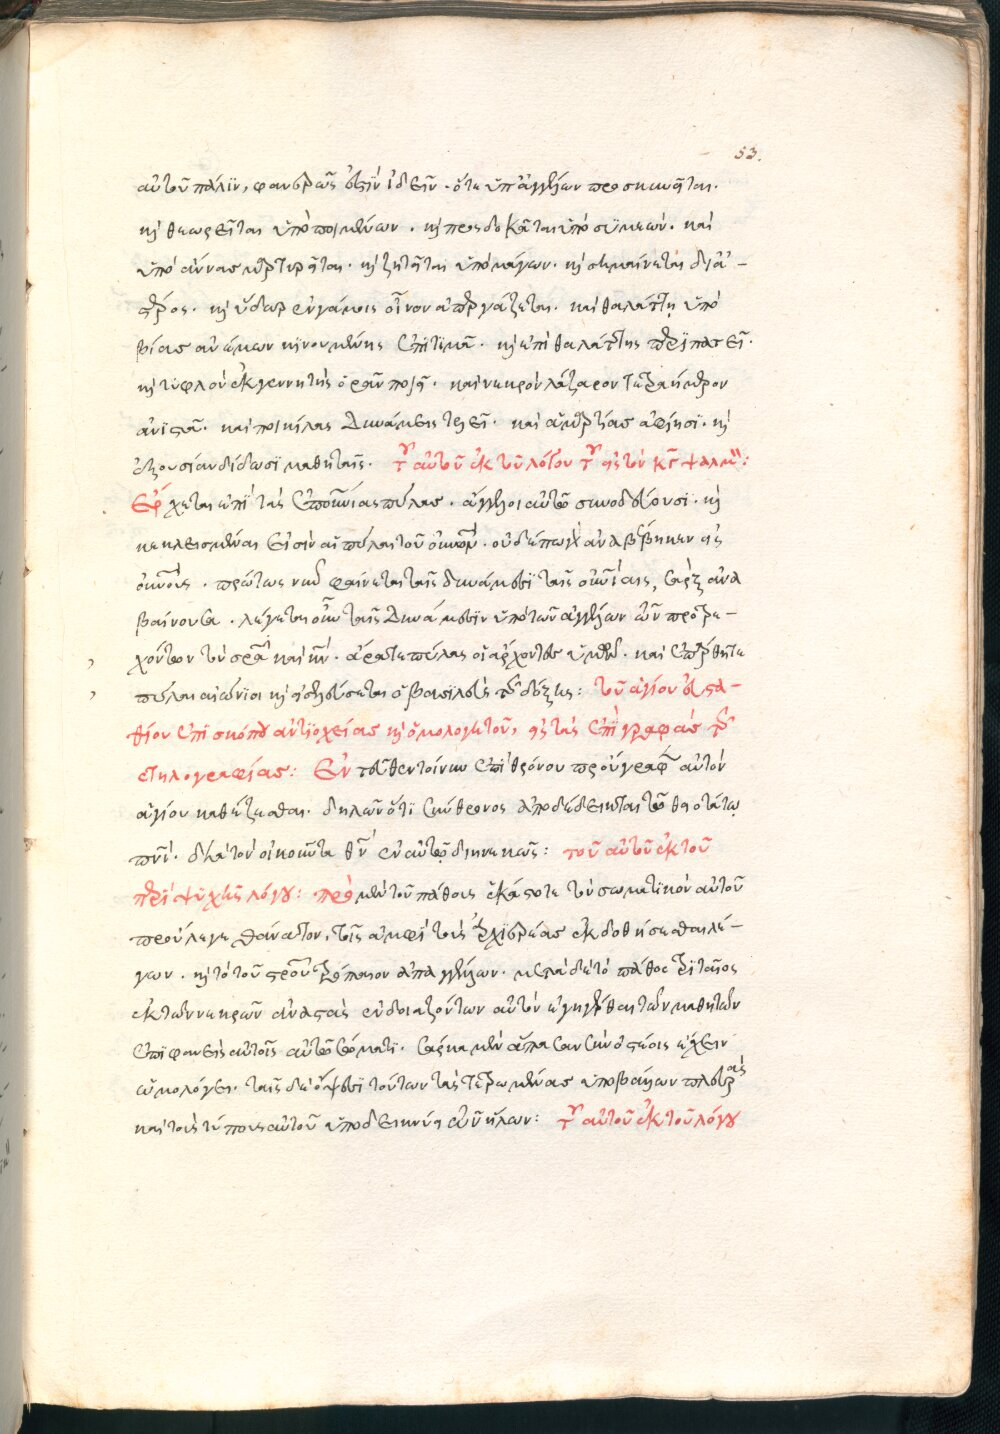 53.
αὐτοῦ πάλιν, φανερῶς ἐστὶν ἰδεῖν· ὅτε ὑπ' ἀγγέλων προσκυνῆται·
κὴ θεωρεῖται ὑπὸ ποιμένων· κὴ προσδοκᾶται ὑπὸ συμεών· καὶ
ὑπὸ ἄννας μαρτυρῆται· κὴ ζητῆται ὑπὸ μάγων· κὴ σημαίνεται δι' ἀ-
στέρος· κὴ ὕδωρ ἐν γάμοις οἶνον ἀπεργάζεται· καὶ θαλάττῃ ὑπὸ
βίας ἀνέμων κινουμένης ἐπιτιμᾶ· κὴ ἐπὶ θαλάττης περιπατεῖ·
κὴ τυφλὸν ἐκ γεννητῆς ὁρᾶν ποιῆ· καὶ νεκρὸν λάζαρον τετραήμερον
ἀνιστᾶ· καὶ ποικίλας δυνάμεις τελεῖ· καὶ ἁμαρτίας ἀφίησι· κὴ
ἐξουσίαν δίδωσι μαθηταῖς· τοῦ αὐτοῦ ἐκ τοῦ λόγου τοῦ εἰς τὸν κγ ψαλμόν:
Ἔρχεται ἐπὶ τὰς ἐπουρανίας πύλας· ἄγγελοι αὐτῶ συνοδεύουσι· κὴ
κεκλεισμέναι εἰσὶν αἱ πύλαι τοῦ οὐρανοῦ· οὐδέπω γὰρ ἀναβέβηκεν εἰς
οὐρανούς· πρώτως νῦν φαίνεται ταῖς δυνάμεσι ταῖς οὐρανίαις, σὰρξ ἀνα
βαίνουσα· λέγεται οὖν ταῖς δυνάμεσιν ὑπὸ τῶν ἀγγέλων τῶν προτρε-
χόντων τὸν σωτῆρα καὶ κύριον· ἄρατε πύλας οἱ ἄρχοντες ὑμῶν· καὶ ἐπάρθητε
πύλαι αἰώνιοι κὴ εἰσελεύσεται ὁ βασιλεὺς τῆς δόξης: τοῦ ἁγίου εὐστα-
θίου ἐπισκόπου ἀντιοχείας κὴ ὁμολογητοῦ, εἰς τὰς ἐπιγραφὰς τῆς
στηλογραφίας: Ἐν ταῦθεν τοίνυν ἐπὶ θρόνου προὔγραφεν αὐτὸν
ἁγίου καθέζεσθαι· δηλῶν ὅτι σύνθρονος ἀποδέδεικται τῶ θειοτάτῳ
πνεύματι· διὰ τὸν οἰκοῦντα θεὸν ἐν αὐτῷ διηνεκῶς: τοῦ αὐτοῦ ἐκ τοῦ
περὶ ψυχῆς λόγου: πρὸ μὲν τοῦ πάθους ἑκάστοτε τὸν σωματικὸν αὐτοῦ
προὔλεγε θάνατον, τοῖς ἀμφὶ τοὺς ἀρχιερέας ἐκδοθήσεσθαι λέ-
γων· κὴ τὸ τοῦ σταυροῦ τρόπαιον ἀπαγγέλων· μετὰ δὲ τὸ πάθος τριταῖος
ἐκ τῶν νεκρῶν ἀναστὰς ἐνδοιαζόντων αὐτὸν ἐγηγέρθαι τῶν μαθητῶν
ἐπιφανεὶς αὐτοῖς αὐτῶ σώματι· σάρκα μὲν ἅπασαν σὺν ὀστέοις ἔχειν
ὡμολόγει· ταῖς δὲ ὄψεσι τούτων τὰς τετρωμένας ὑποβάλλων πλευρὰς
καὶ τοὺς τύπους αὐτοῦ ὑποδεικνὺς τῶν ἥλων: τοῦ αὐτοῦ ἐκ τοῦ λόγου